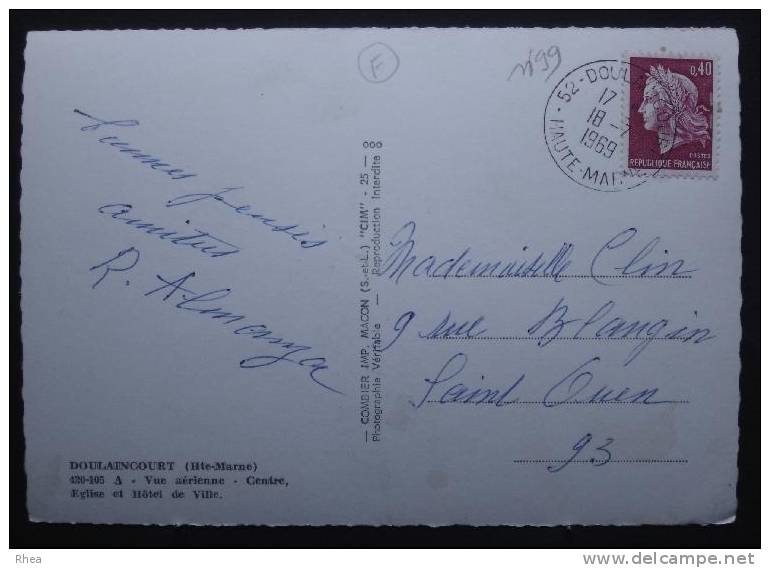 F
n°99
52-DOULAINCOURT
17
18-7
1969
HAUTE-MARNE
0,40
POSTES
REPUBLIQUE FRANÇAISE
bonnes pensées
amitiés
R. Almonza
Mademoiselle Clin
9 rue Blangin
Saint Ouen
93
— COMBIER IMP. MACON (S.-et-L.) "CIM" - 25 —
Photographie Véritable - Reproduction Interdite
DOULAINCOURT (Hte-Marne)
420-105 A - Vue aérienne - Centre,
Eglise et Hôtel de Ville.
Rhea
www.delcampe.net